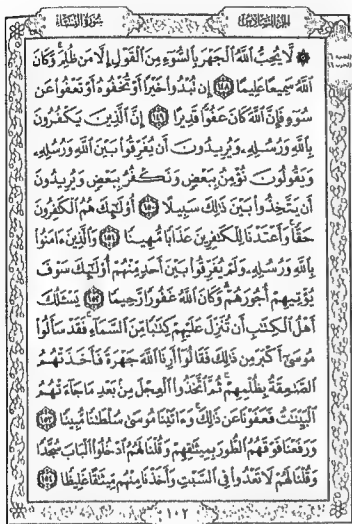 سُورَةُ النِّسَاءِ الجُزْءُ السَّادِسُ
۞ لَّا يُحِبُّ اللَّهُ الْجَهْرَ بِالسُّوءِ مِنَ الْقَوْلِ إِلَّا مَن ظُلِمَ وَكَانَ
اللَّهُ سَمِيعًا عَلِيمًا ١٤٨ إِن تُبْدُوا خَيْرًا أَوْ تُخْفُوهُ أَوْ تَعْفُوا عَن
سُوءٍ فَإِنَّ اللَّهَ كَانَ عَفُوًّا قَدِيرًا ١٤٩ إِنَّ الَّذِينَ يَكْفُرُونَ
بِاللَّهِ وَرُسُلِهِ وَيُرِيدُونَ أَن يُفَرِّقُوا بَيْنَ اللَّهِ وَرُسُلِهِ
وَيَقُولُونَ نُؤْمِنُ بِبَعْضٍ وَنَكْفُرُ بِبَعْضٍ وَيُرِيدُونَ
أَن يَتَّخِذُوا بَيْنَ ذَٰلِكَ سَبِيلًا ١٥٠ أُولَٰئِكَ هُمُ الْكَٰفِرُونَ
حَقًّا وَأَعْتَدْنَا لِلْكَٰفِرِينَ عَذَابًا مُّهِينًا ١٥١ وَالَّذِينَ ءَامَنُوا
بِاللَّهِ وَرُسُلِهِ وَلَمْ يُفَرِّقُوا بَيْنَ أَحَدٍ مِّنْهُمْ أُولَٰئِكَ سَوْفَ
يُؤْتِيهِمْ أُجُورَهُمْ وَكَانَ اللَّهُ غَفُورًا رَّحِيمًا ١٥٢ يَسْـَٔلُكَ
أَهْلُ الْكِتَٰبِ أَن تُنَزِّلَ عَلَيْهِمْ كِتَٰبًا مِّنَ السَّمَاءِ فَقَدْ سَأَلُوا
مُوسَىٰ أَكْبَرَ مِن ذَٰلِكَ فَقَالُوا أَرِنَا اللَّهَ جَهْرَةً فَأَخَذَتْهُمُ
الصَّٰعِقَةُ بِظُلْمِهِمْ ثُمَّ اتَّخَذُوا الْعِجْلَ مِن بَعْدِ مَا جَاءَتْهُمُ
الْبَيِّنَٰتُ فَعَفَوْنَا عَن ذَٰلِكَ وَءَاتَيْنَا مُوسَىٰ سُلْطَٰنًا مُّبِينًا ١٥٣
وَرَفَعْنَا فَوْقَهُمُ الطُّورَ بِمِيثَٰقِهِمْ وَقُلْنَا لَهُمُ ادْخُلُوا الْبَابَ سُجَّدًا
وَقُلْنَا لَهُمْ لَا تَعْدُوا فِي السَّبْتِ وَأَخَذْنَا مِنْهُم مِّيثَٰقًا غَلِيظًا ١٥٤
١٠٢